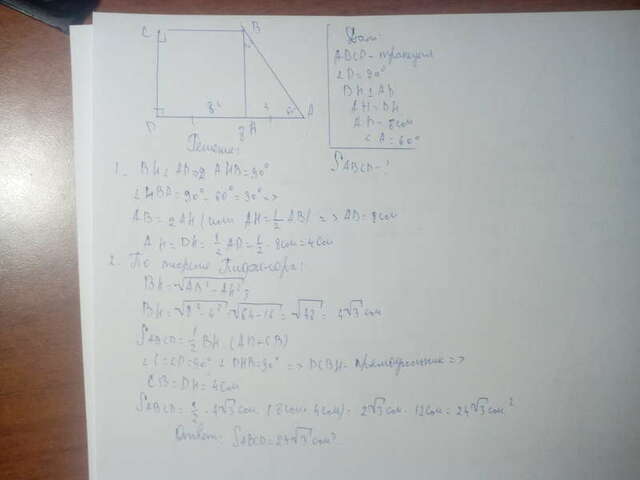 C
B
D
H
A
8
60°
Дано:
ABCD - трапеция
∠D = 90°
BH ⊥ AD
AH = DH
AD = 8см
∠A = 60°
SABCD - ?
Решение:
1. BH ⊥ AD => ∠AHB = 90°
∠HBA = 90° - 60° = 30° =>
AB = 2AH (или AH = 1/2 AB) => AB = 8см
AH = DH = 1/2 AD = 1/2 · 8см = 4см
2. По теореме Пифагора:
BH = √AB² - AH²;
BH = √8² - 4² = √64 - 16 = √48 = 4√3 см
SABCD = 1/2 BH · (AD + CB)
∠C = ∠D = 90° ∠DHB = 90° => DCBH - прямоугольник =>
CB = DH = 4см
SABCD = 1/2 · 4√3 см · (8см + 4см) = 2√3 см · 12см = 24√3 см²
Ответ: SABCD = 24√3 см²